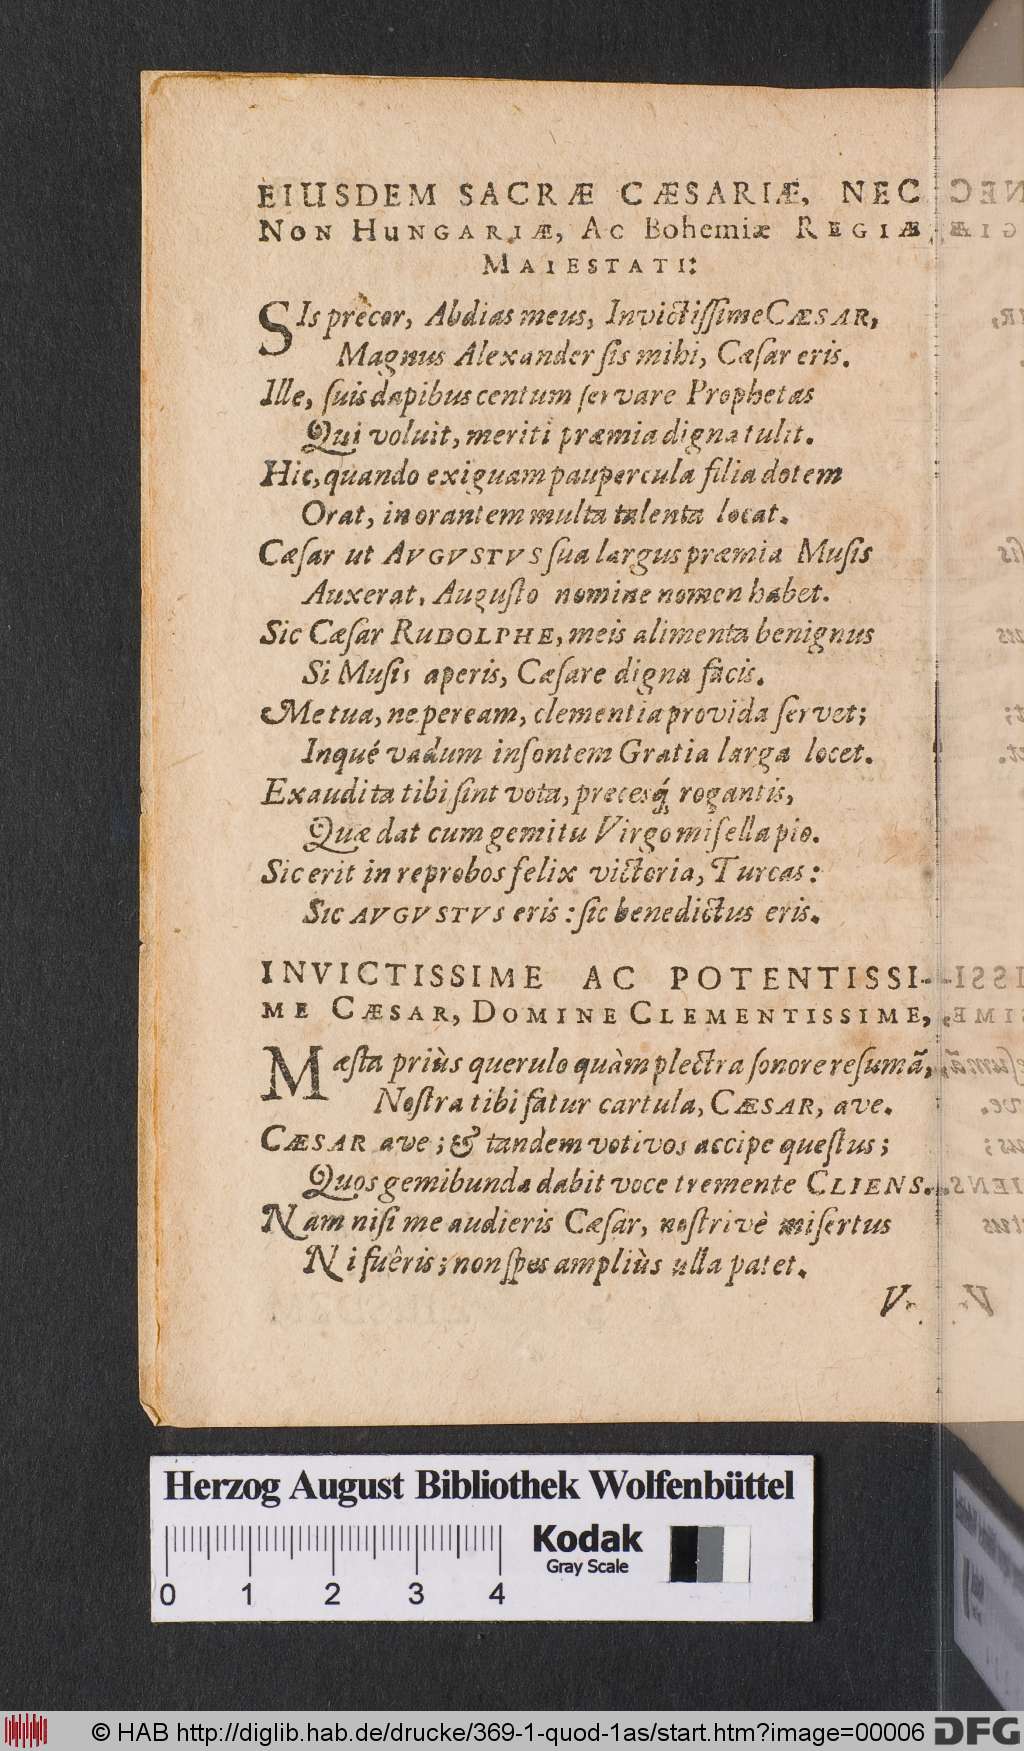 EIUSDEM SACRÆ CÆSARIÆ, NEC
NON HUNGARIÆ, AC Bohemiæ REGIÆ
MAIESTATI:
SIs precor, Abdias meus, Invictissime CÆSAR,
Magnus Alexander sis mihi, Cæsar eris.
Ille, suis dapibus centum servare Prophetas
Qui voluit, meriti præmia digna tulit.
Hic, quando exiguam paupercula filia dotem
Orat, in orantem multa talenta locat.
Cæsar ut AVGVSTVS sua largus præmia Musis
Auxerat, Augusto nomine nomen habet.
Sic Cæsar RUDOLPHE, meis alimenta benignus
Si Musis aperis, Cæsare digna facis.
Me tua, ne peream, clementia provida servet;
Inqué vadum insontem Gratia larga locet.
Exaudita tibi sint vota, precesq́; rogantis,
Quæ dat cum gemitu Virgo misella pio.
Sic erit in reprobos felix victoria, Turcas:
Sic AVGVSTVS eris: sic benedictus eris.
INVICTISSIME AC POTENTISSI-
ME CÆSAR, DOMINE CLEMENTISSIME,
MÆsta priùs querulo quàm plectra sonore resumã,
Nostra tibi fatur cartula, CÆSAR, ave.
CÆSAR ave; & tandem votivos accipe questus;
Quos gemibunda dabit voce tremente CLIENS.
Nam nisi me audieris Cæsar, nostrivè misertus
Ni fuêris; non spes ampliùs ulla patet.
Herzog August Bibliothek Wolfenbüttel
Kodak
Gray Scale
0 1 2 3 4
© HAB http://diglib.hab.de/drucke/369-1-quod-1as/start.htm?image=00006 DFG